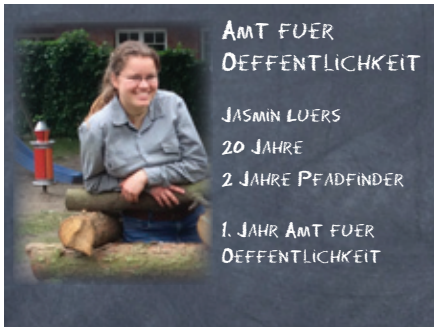 Amt fuer
Oeffentlichkeit
Jasmin Luers
20 Jahre
2 Jahre Pfadfinder
1. Jahr Amt fuer
Oeffentlichkeit